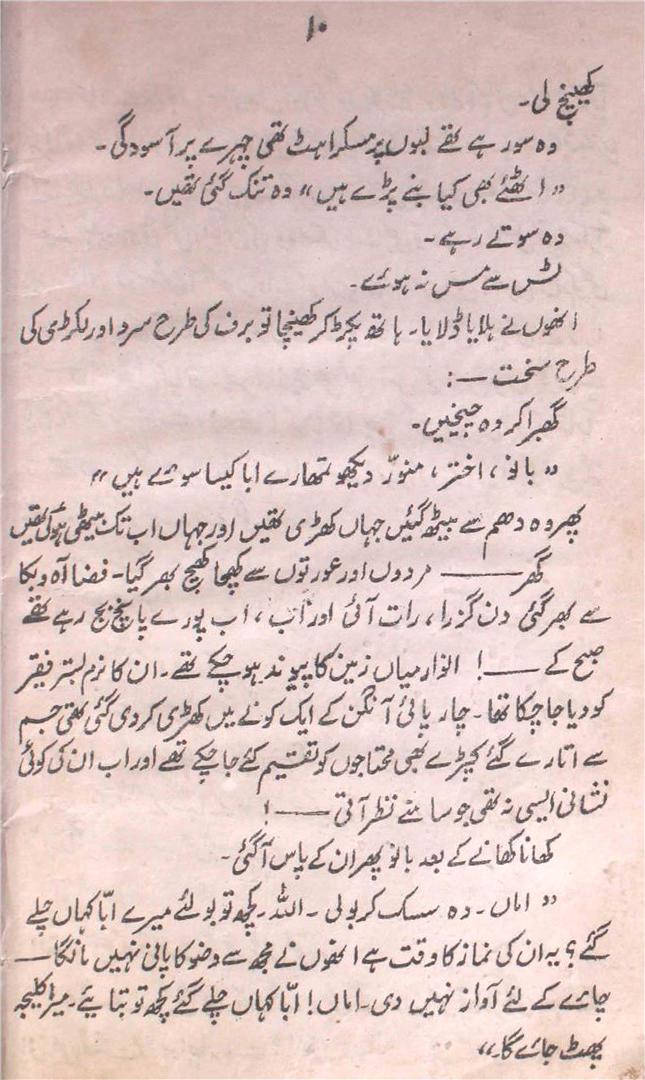 ۱۰
کھینچ لی۔
وہ سو رہے تھے لبوں پر مسکراہٹ تھی چہرے پر آسودگی۔
"اٹھئے بھی کیا بنے پڑے ہیں" وہ تنک گئی تھیں۔
وہ سوتے رہے۔
ٹس سے مس نہ ہوئے۔
انھوں نے ہلایا ڈلایا۔ ہاتھ پکڑ کر کھینچا تو برف کی طرح سرد اور لکڑی کی
طرح سخت —:
گھبرا کر وہ چیخیں۔
"بانو، اختر، منوّر دیکھو تمھارے ابا کیسا سوئے ہیں"
پھر وہ دھم سے بیٹھ گئیں جہاں کھڑی تھیں اور جہاں اب تک بیٹھی ہوئی تھیں
گھر —— مردوں اور عورتوں سے کھچا کھچ بھر گیا۔ فضا آہ و بکا
سے بھر گئی دن گزرا، رات آئی اور اب، اب پورے پانچ بج رہے تھے
صبح کے —! انوار میاں زمین کا پیوند ہو چکے تھے۔ ان کا نرم بستر فقیر
کو دیا جا چکا تھا۔ چار پائی آنگن کے ایک کونے میں کھڑی کر دی گئی تھی جسم
سے اتارے گئے کپڑے بھی محتاجوں کو تقسیم کئے جا چکے تھے اور اب ان کی کوئی
نشانی ایسی نہ تھی جو سامنے نظر آتی ——!
کھانا کھانے کے بعد بانو پھر ان کے پاس آ گئی۔
"اماں۔ وہ سسک کر بولی۔ اللہ۔ کچھ تو بولئے میرے ابّا کہاں چلے
گئے؟ یہ ان کی نماز کا وقت ہے انھوں نے مجھ سے وضو کا پانی نہیں مانگا —
چائے کے لئے آواز نہیں دی۔ اماں! ابّا کہاں چلے گئے کچھ تو بتایئے۔ میرا کلیجہ
پھٹ جائے گا۔"